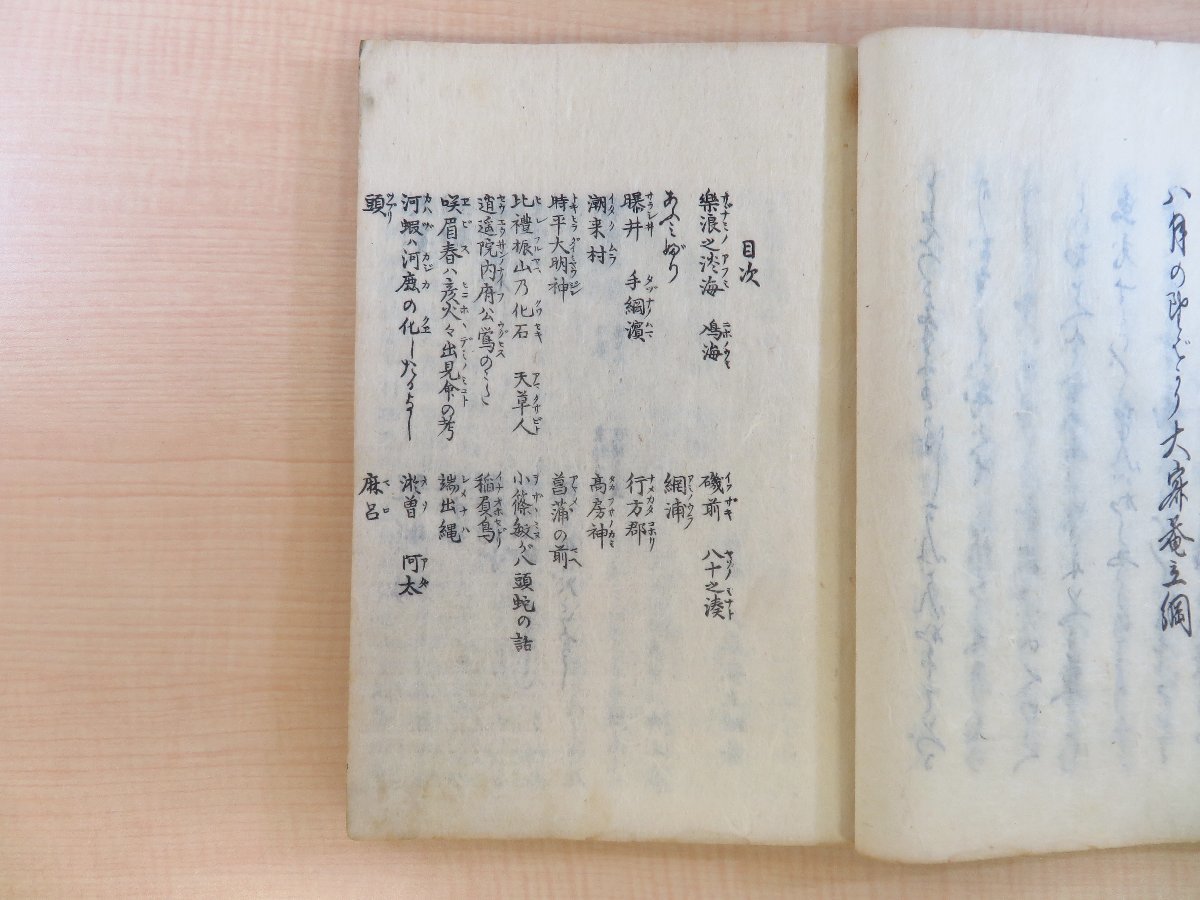 八月の
大寂菴立綱
目次
樂浪之淡海 鳰海 磯前 八十之湊
網浦
曝井 手綱濱 行方郡
潮来村 髙房神
時平大明神 菖蒲の前
比禮振山乃化石 天草人 小篠敏が八頭蛇の話
逍遥院内府公鶯のうた 稲負鳥
咲眉春ハ彦火々出見命の考 端出縄
河蝦ハ河鹿の化したるよし 淤曽 阿太
頭 麻呂